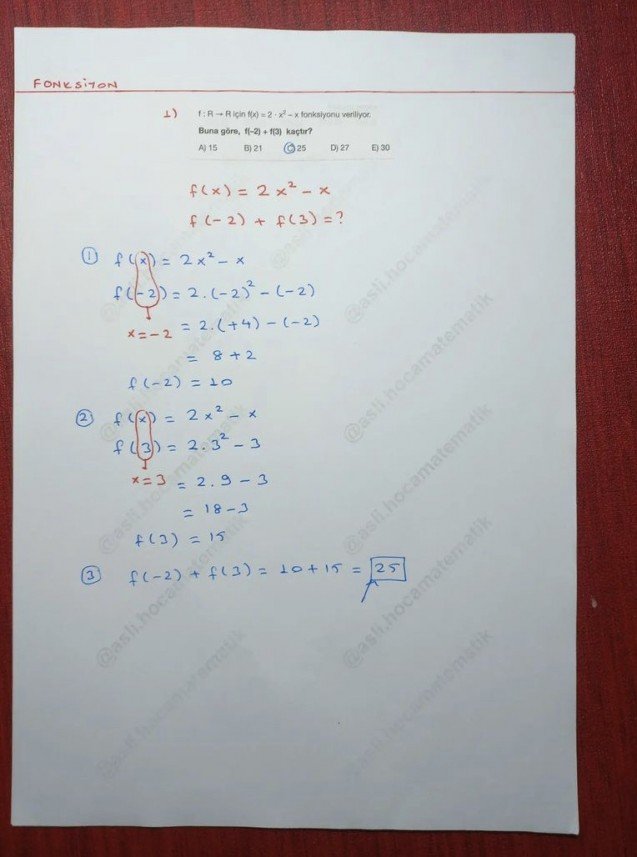 FONKSİYON
1) f : R → R için f(x) = 2 · x² – x fonksiyonu veriliyor.
Buna göre, f(–2) + f(3) kaçtır?
A) 15 B) 21 C) 25 D) 27 E) 30
f(x) = 2x² – x
f(–2) + f(3) = ?
① f(x) = 2x² – x
f(–2) = 2.(–2)² – (–2)
x = –2 = 2.(+4) – (–2)
= 8 + 2
f(–2) = 10
② f(x) = 2x² – x
f(3) = 2.3² – 3
x = 3 = 2.9 – 3
= 18 – 3
f(3) = 15
③ f(–2) + f(3) = 10 + 15 = 25
@asli.hocamatematik
@asli.hocamatematik
@asli.hocamatematik
@asli.hocamatematik
@asli.hocamatematik
@asli.hocamatematik
@asli.hocamatematik
@asli.hocamatematik